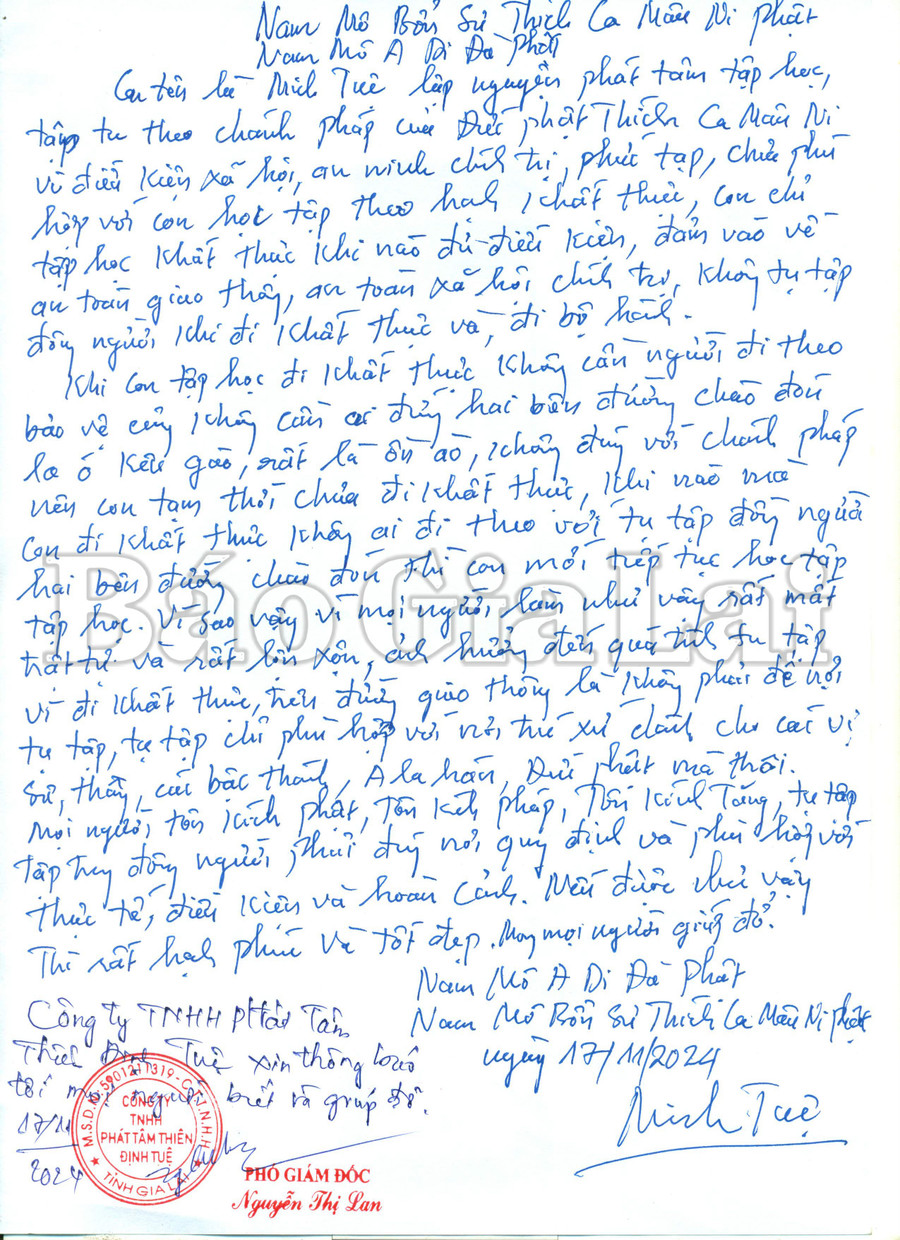 Nam Mô Bổn Sư Thích Ca Mâu Ni Phật
Nam Mô A Di Đà Phật
Con tên là Minh Tuệ lập nguyện phát tâm tập học,
tập tu theo chánh pháp của Đức phật Thích Ca Mâu Ni
vì điều kiện xã hội, an ninh chính trị, phức tạp, chưa phù
hợp với con học tập theo hạnh khất thực, con chỉ
tập học khất thực khi nào đủ điều kiện, đảm vảo về
an toàn giao thông, an toàn xã hội chính trị, không tụ tập
đông người khi đi khất thực và, đi bộ hành.
Khi con tập học đi khất thực không cần người đi theo
bảo vệ cũng không cần ai đứng hai bên đường chào đón
la ó kêu gào, rất là ồn ào, không đúng với chánh pháp
nên con tạm thời chưa đi khất thực, khi nào mà
con đi khất thực không ai đi theo với tụ tập đông người
hai bên đường chào đón thì con mới tiếp tục học tập
tập học. Vì sao vậy vì mọi người làm như vậy rất mất
trật tự và rất lộn xộn, ảnh hưởng đến quá trình tu tập
vì đi khất thực, trên đường giao thông là không phải để nơi
tụ tập, tụ tập chỉ phù hợp với nơi trú xứ dành cho các vị
sư, thầy, các bậc thánh, A la hán, Đức phật mà thôi.
Mọi người, tôn kính phật, Tôn kính pháp, Tôn kính Tăng, tụ tập
tập trung đông người phải đúng nơi quy định và phù hợp với
thực tế, điều kiện và hoàn cảnh. Nếu được như vậy
Thì rất hạnh phúc và tốt đẹp. Mong mọi người giúp đỡ.
Nam Mô A Di Đà Phật
Nam Mô Bổn Sư Thích Ca Mâu Ni phật
ngày 17/11/2024
Minh Tuệ
Công ty TNHH Phát Tâm
Thiên Định Tuệ xin thông báo
tới mọi người biết và giúp đỡ.
17/11
2024
M.S.D.N: 5901211319 - C.T.T.N.H.H
CÔNG TY
TNHH
PHÁT TÂM THIÊN
ĐỊNH TUỆ
TỈNH GIA LAI
PHÓ GIÁM ĐỐC
Nguyễn Thị Lan
Báo Gia Lai